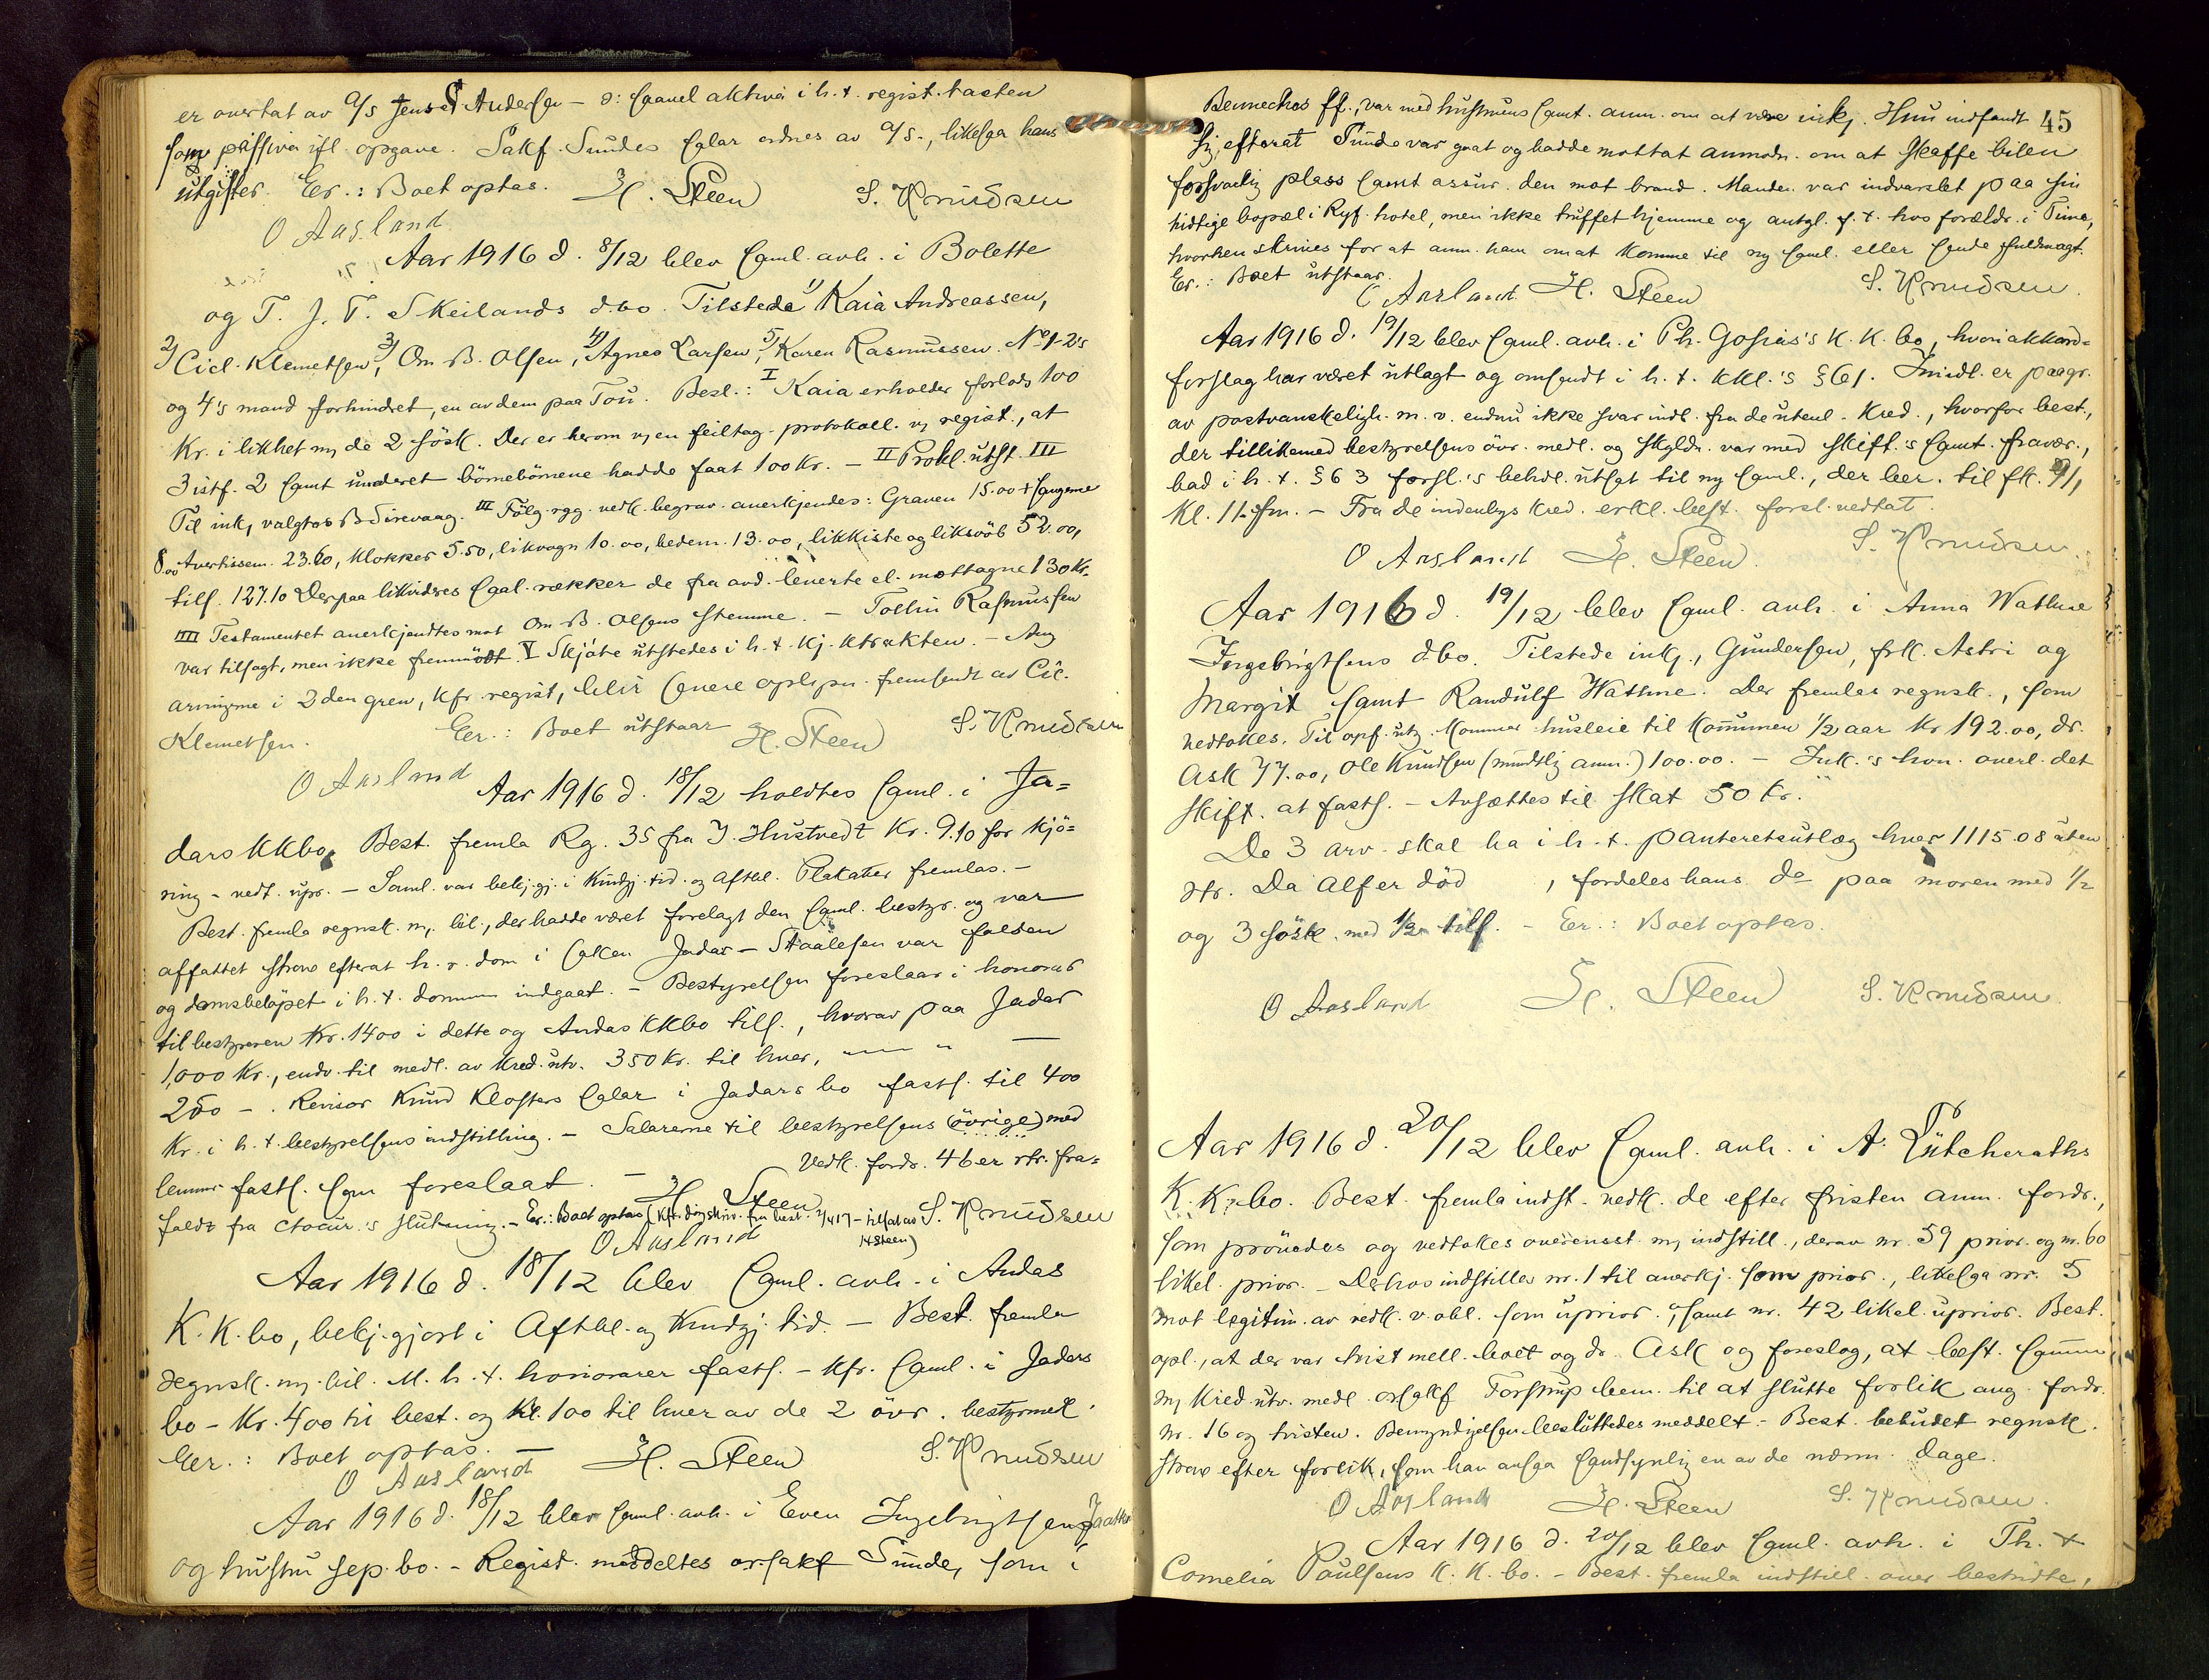 er overtat av A/S Jens Andersen – ɔ: saavel aktiva i h. t. regist. tasten
som passiva ifl. opgave. Sakf. Sundes salar ordnes av A/S., likesaa hans
utgifter. Eer.: Boet optas. H. Steen S. Knudsen
O Aasland
Aar 1916 d. 8/12 blev saml. avh. i Bolette
og T. J. T. Skeilands dbo. Tilstede 1) Kaia Andreassen,
2) Cicl. Klemetsen, 3) Om B. Olsen, 4) Agnes Larsen, 5) Karen Rasmussen. No 1-2's
og 4's mand forhindret, en av dem paa Tou. Besl.: I Kaia erholder forlods 100
Kr. i likhet m. de 2 søsk. Der er herom v. en feiltag. protokoll. v. regist., at
3 istf. 2 samt underet børnebørnene hadde faat 100 Kr. – II Prokl. utst. III
Til ink. valgtes B Direvaag. III Følg. rgg. vedk. begrav. anerkjendes: Graven 15.00 + sangerne
8.00 Avertissem. 23.60, klokker 5.50, likvogn 10.00, bedem. 13.00, likkiste og liksvøb 52.00,
tils. 127.10 Derpaa likvideres saal. rækker de fra avd. leverte el. mottagne 130 Kr.
IIII Testamentet anerkjendtes mot Om B. Olsens stemme. – Tollin Rasmussen
var tilsagt, men ikke fremmødt. V Skjøte utstedes i h. t. kj. ktrakten. – Ang
arvingerne i 2den gren, kfr. regist, blir senere oplysn. fremsendt av Cic.
Klemetsen. Eer.: Boet utstaar H. Steen S. Knudsen
O Aasland Aar 1916 d. 18/12 holdtes saml. i Ja=
dars KKbo. Best. fremla Rg. 35 fra J. Hustvedt Kr. 9.10 for kjø=
ring – vedt. upr. – Saml. var bekj.gj. i Kundgj. tid. og Aftbl. Plakater fremlas. –
Best. fremla regnsk. m. bil., der hadde været forelagt den saml. bestyr. og var
affattet strax efterat h. r. dom i saken Jadar – Staalesen var falden
og domsbeløpet i h. t. dommen indgaat. – Bestyrelsen foreslaar i honorar
til bestyreren Kr. 1400 i dette og Andas KKbo tils., hvorav paa Jadar
1,000 Kr., endv. til medl. av Kred. utv. 350 Kr. til hver, — " —
250 – . Revisor Knud Klosters salar i Jadars bo fasts. til 400
Kr. i h. t. bestyrelsens indstilling. – Salarerne til bestyrelsens (øvrige) med
lemmer fasts. som foreslaat. – Vedk. fordr. 46 er str. fra=
faldt fra ctocur.'s slutning. – Er.: Boet optas (Kfr. dog skriv. fra best. 2/4 17 – tilsat av H Steen) H Steen S. Knudsen
O Aasland
Aar 1916 d. 18/12 blev saml. avh. i Andas
K. K. bo, bekj.gjort i Aftbl. og Kundgj. tid. – Best. fremla
regnsk. m. bil. M. h. t. honorarer fasts. – kfr. saml. i Jadars
bo – Kr. 400 til best. og Kr. 100 til hver av de 2 øvr. bestyrmedl.
Eer.: Boet optas. – H. Steen S. Knudsen
O Aasland
Aar 1916 d. 18/12 blev saml. avh. i Even Ingebrigtsen Jaatta
og hustru sep. bo. – Regist. meddeltes or.sakf Sunde, som i
45
Bennechos ff., var med hustruens samt. anm. om at være inkj. Hun indfandt
sig, efterat Sunde var gaat og hadde mottat anmodn. om at skaffe bilen
forsvarlig plass samt assur. den mot brand. Manden var indvarslet paa sin
hidtige bopæl i Ryf. hotel, men ikke truffet hjemme og antgl. f. t. hos forældr. i Time,
hvorhen skrives for at anm. ham om at komme til ny saml. eller sende fuldmagt.
Er.: Boet utstaar.
O Aasland H. Steen S. Knudsen.
Aar 1916 d. 19/12 blev saml. avh. i Ph. Gosias's K. K. bo, hvori akkord=
forslag har været utlagt og omsendt i h. t. KKl.'s § 61. Imidl. er paagr.
av postvanskeligh. m. v. endnu ikke svar indl. fra de utenl. Kred., hvorfor best.,
der tillikemed bestyrelsens øvr. medl. og skyldn. var med skift.'s samt. fravær.,
bad i h. t. § 63 forsl.'s behdl. utsat til ny saml., der ber. til fk. 9/1
Kl. 11 fm. – Fra de indenbys Kred. erkl. best. forsl. vedtat.
O Aasland H. Steen S. Knudsen.
Aar 1916 d. 19/12 blev saml. avh. i Anna Wathne
Ingebrigtsens dbo. Tilstede inkj., Gundersen, frk. Astri og
Margit samt Randulf Wathne. Der fremlas regnsk., som
vedtokes. Til opf. utg. kommer husleie til Kommunen 1/2 aar Kr 192.00, dr.
Ask 77.00, Ole Knudsen (mundtlig anm.) 100.00. – Ink.'s hon. overl. det
skift. at fasts. – Avsættes til skat 50 Kr.
De 3 arv. skal ha i h. t. panteretsutlæg hver 1115.08 uten
str. Da Alf er død , fordeles hans do paa moren med 1/2
og 3 søsk. med 1/2 tils. – Er.: Boet optas.
O Aasland H. Steen S. Knudsen
Aar 1916 d. 20/12 blev saml. avh. i A. Lütcheraths
K. K. bo. Best. fremla indst. vedk. de efter fristen anm. fordr.,
som prøvedes og vedtokes overensst. m. indstill., derav nr. 59 prior. og nr. 60
likel. prior. – Derhos indstilles nr. 1 til anerkj. som prior., likesaa nr. 5
mot legitim. av vedk. v. obl. som uprior., samt nr. 42 likel. uprior. Best.
opl., at der var tvist mell. boet og dr. Ask og foreslog, at best. sammen
m. Kred. utv. medl. orsakf Torstrup bem. til at slutte forlik ang. fordr.
nr. 16 og tvisten. Bemyndigelsen besluttedes meddelt. – Best. bebudet regnsk.
straxs efter forlik, som han ansaa sandsynlig en av de nærm. dage.
O Aasland H. Steen S. Knudsen.
Aar 1916 d. 20/12 blev saml. avh. i Th. &
Cornelia Paulsens K. K. bo. – Best. fremla indstill. over bestridte,